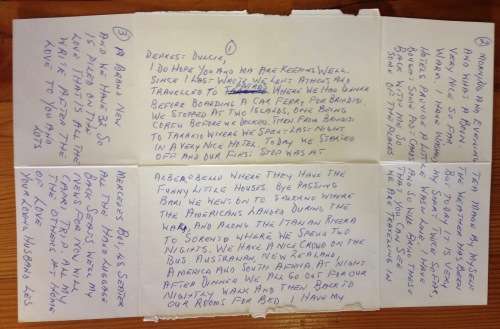 ①
DEAREST DULCIE,
I DO HOPE YOU AND MA ARE KEEPING WELL
SINCE I LAST WROTE WE LEFT ATHENS AND
TRAVELLED TO WHERE WE HAD DINNER
BEFORE BOARDING A CAR FERRY FOR BRINDISI
WE STOPPED AT TWO ISLANDS, ONE BEING
CORFU BEFORE WE DOCKED, THEN FROM BRINDISI
TO TARANTO WHERE WE SPENT LAST NIGHT
IN A VERY NICE HOTEL. TODAY WE STARTED
OFF AND OUR FIRST STOP WAS AT
ALBEROBELLO WHERE THEY HAVE THE
FUNNY LITTLE HOUSES BYE PASSING
BARI WE WENT ON TO SALERNO WHERE
THE AMERICANS LANDED DURING THE
WAR, AND ALONG THE ITALIAN RIVERA
TO SORENTO WHERE WE SPEND TWO
NIGHTS. WE HAVE A NICE CROWD ON THE
BUS AUSTRALIAN, NEW ZEALAND,
AMERICA AND SOUTH AFRICA AT NIGHT
AFTER DINNER WE ALL GO OUT FOR OUR
NIGHTLY WALK AND THEN BACK TO
OUR ROOMS FOR BED. I HAVE MY
②
MORNING AND EVENING TEA MADE BY MYSELF
AND WHAT A BOON THE WEATHER HAS BEEN
VERY NICE SO FAR BUT TODAY IT IS VERY
WARM. I HAVE WORN MY SHIRT TWICE,
PROVIDE A LITTLE WASH WHEN I HAVE
BOUGHT SOME POST CARDS AND SO WILL BRING THOSE
BACK WITH ME SO THAT YOU CAN SEE
SOME OF THE PLACES WE ARE TRAVELLING IN
③
A BRAND NEW MERCEDES BUS, 46 SEATER
AND WE HAVE 32 SO ALL THE HAND LUGGAGE
IS PILED ON THE BACK SEATS WELL MY
LOVE THAT'S ALL THE NEWS FOR NOW WILL
WRITE AFTER THE CAPRI TRIP. ALL MY
LOVE TO YOU AND THE OTHERS AT HOME
LOTS OF LOVE
YOUR LOVING HUSBAND LES